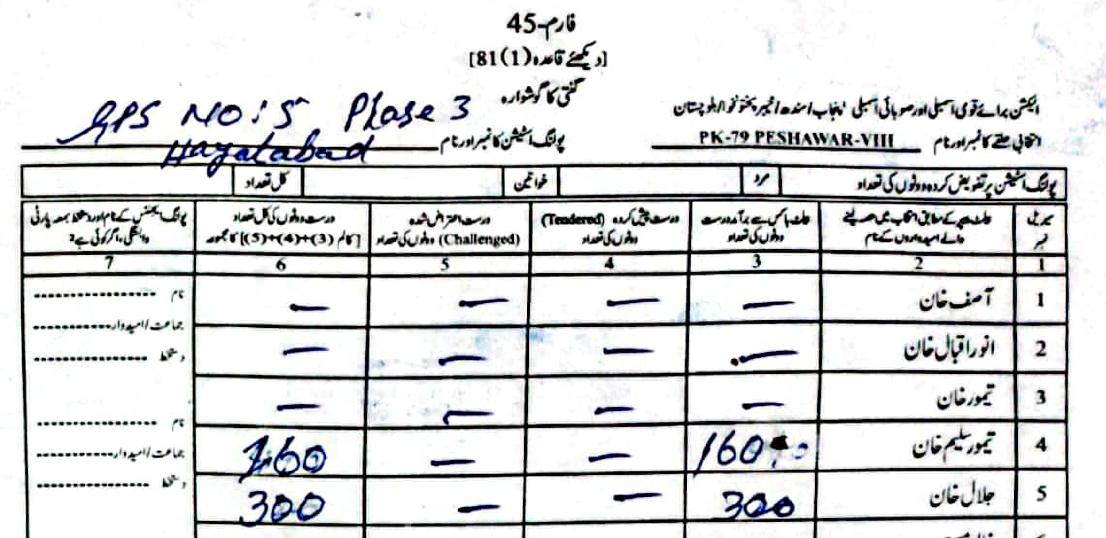 فارم-45
[دیکھئے قاعدہ (1)81]
گنتی کا گوشوارہ
الیکشن برائے قومی اسمبلی اور صوبائی اسمبلی پنجاب/سندھ/خیبر پختونخوا/بلوچستان
انتخابی حلقے کا نمبر اور نام PK-79 PESHAWAR-VIII پولنگ اسٹیشن کا نمبر اور نام GPS NO:5 Phase 3
Hayatabad
پولنگ اسٹیشن پر تفویض کردہ ووٹوں کی تعداد مرد خواتین کل تعداد
سیریل نمبر
بیلٹ پیپر کے مطابق انتخاب میں حصہ لینے والے امیدواروں کے نام
بیلٹ باکس سے برآمد درست ووٹوں کی تعداد
درست پیش کردہ (Tendered) ووٹوں کی تعداد
درست اعتراض شدہ (Challenged) ووٹوں کی تعداد
درست ووٹوں کی کل تعداد [کالم (3)+(4)+(5) کا مجموعہ]
پولنگ ایجنٹس کے نام اور دستخط بمعہ پارٹی وابستگی، اگر کوئی ہے؟
1 2 3 4 5 6 7
1 آصف خان — — — — نام
جماعت/امیدوار
2 انور اقبال خان — — — — دستخط
3 تیمور خان — — — — نام
4 تیمور سلیم خان 160 — — 160 جماعت/امیدوار
5 جلال خان 300 — — 300 دستخط